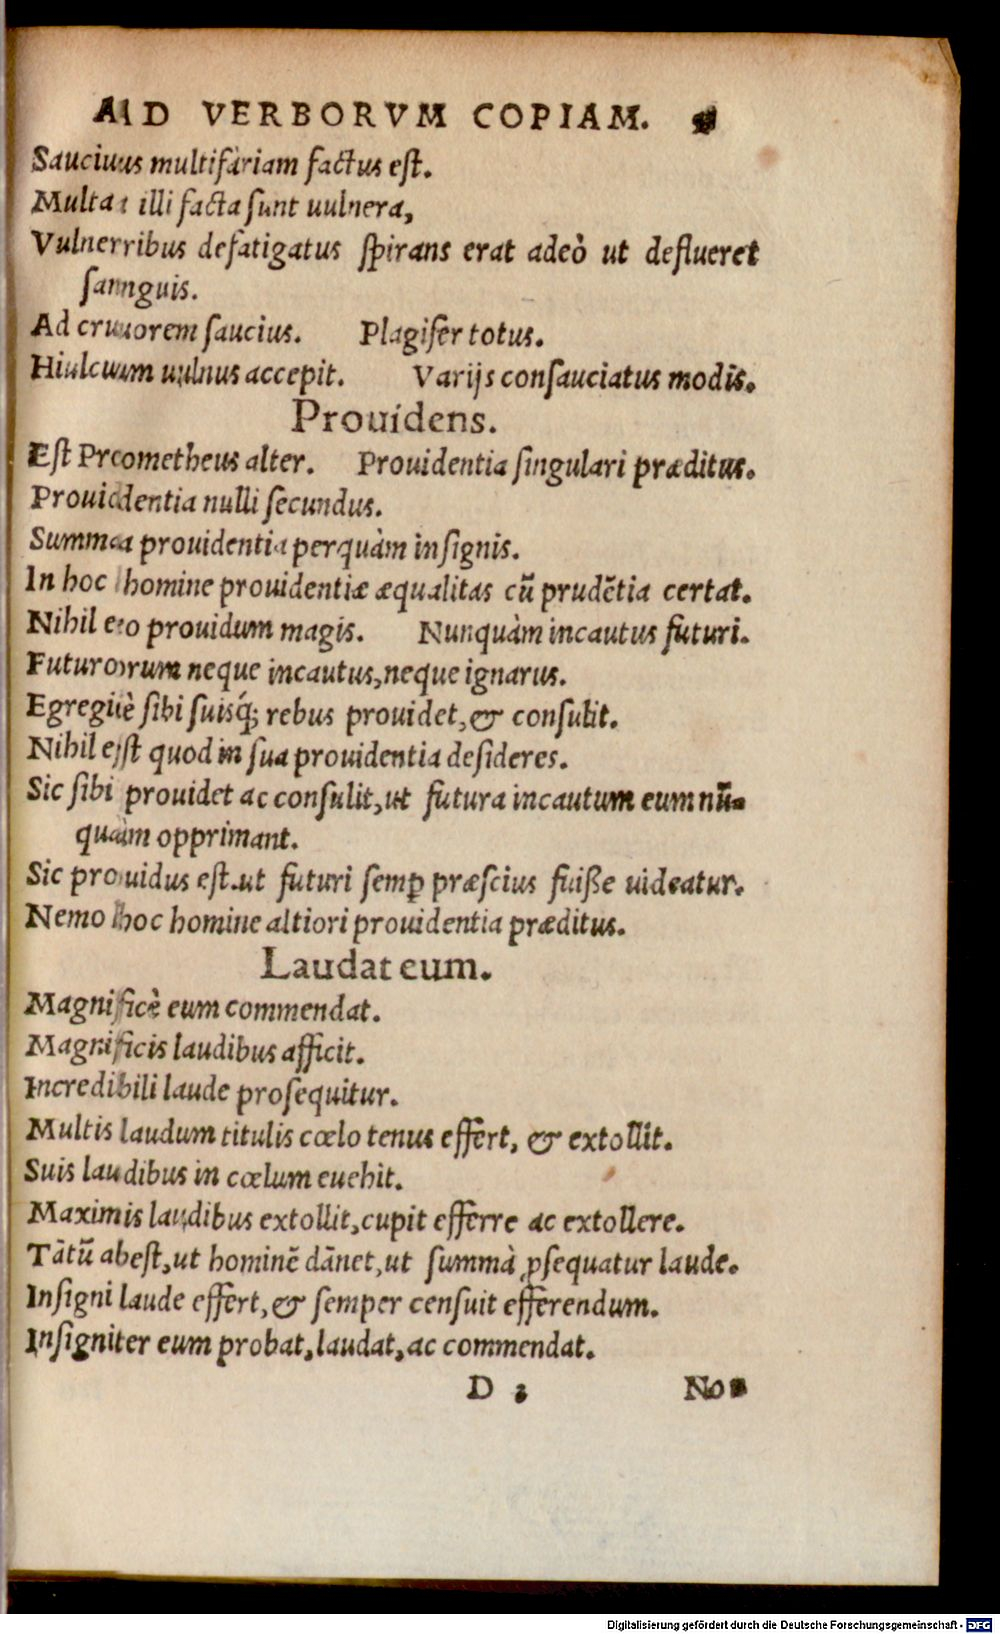 AD VERBORVM COPIAM.
Saucius multifàriam factus est.
Multa illi facta sunt uulnera,
Vulneribus defatigatus spirans erat adeò ut deflueret
sanguis.
Ad cruorem saucius. Plagifer totus.
Hiulcum uulnus accepit. Varijs consauciatus modis.
Prouidens.
Est Prometheus alter. Prouidentia singulari præditus.
Prouidentia nulli secundus.
Summa prouidentia perquàm insignis.
In hoc homine prouidentiæ æqualitas cū prudētia certat.
Nihil eo prouidum magis. Nunquàm incautus futuri.
Futurorum neque incautus, neque ignarus.
Egregiè sibi suisq́; rebus prouidet, & consulit.
Nihil est quod in sua prouidentia desideres.
Sic sibi prouidet ac consulit, ut futura incautum eum nū-
quàm opprimant.
Sic prouidus est.ut futuri semꝑ præscius fuiße uideatur.
Nemo hoc homine altiori prouidentia præditus.
Laudat eum.
Magnificè eum commendat.
Magnificis laudibus afficit.
Incredibili laude prosequitur.
Multis laudum titulis cœlo tenus effert, & extollit.
Suis laudibus in cœlum euehit.
Maximis laudibus extollit, cupit efferre ac extollere.
Tātū abest, ut hominē dānet, ut summà ꝓsequatur laude.
Insigni laude effert, & semper censuit efferendum.
Insigniter eum probat, laudat, ac commendat.
D
Digitalisierung gefördert durch die Deutsche Forschungsgemeinschaft - DFG